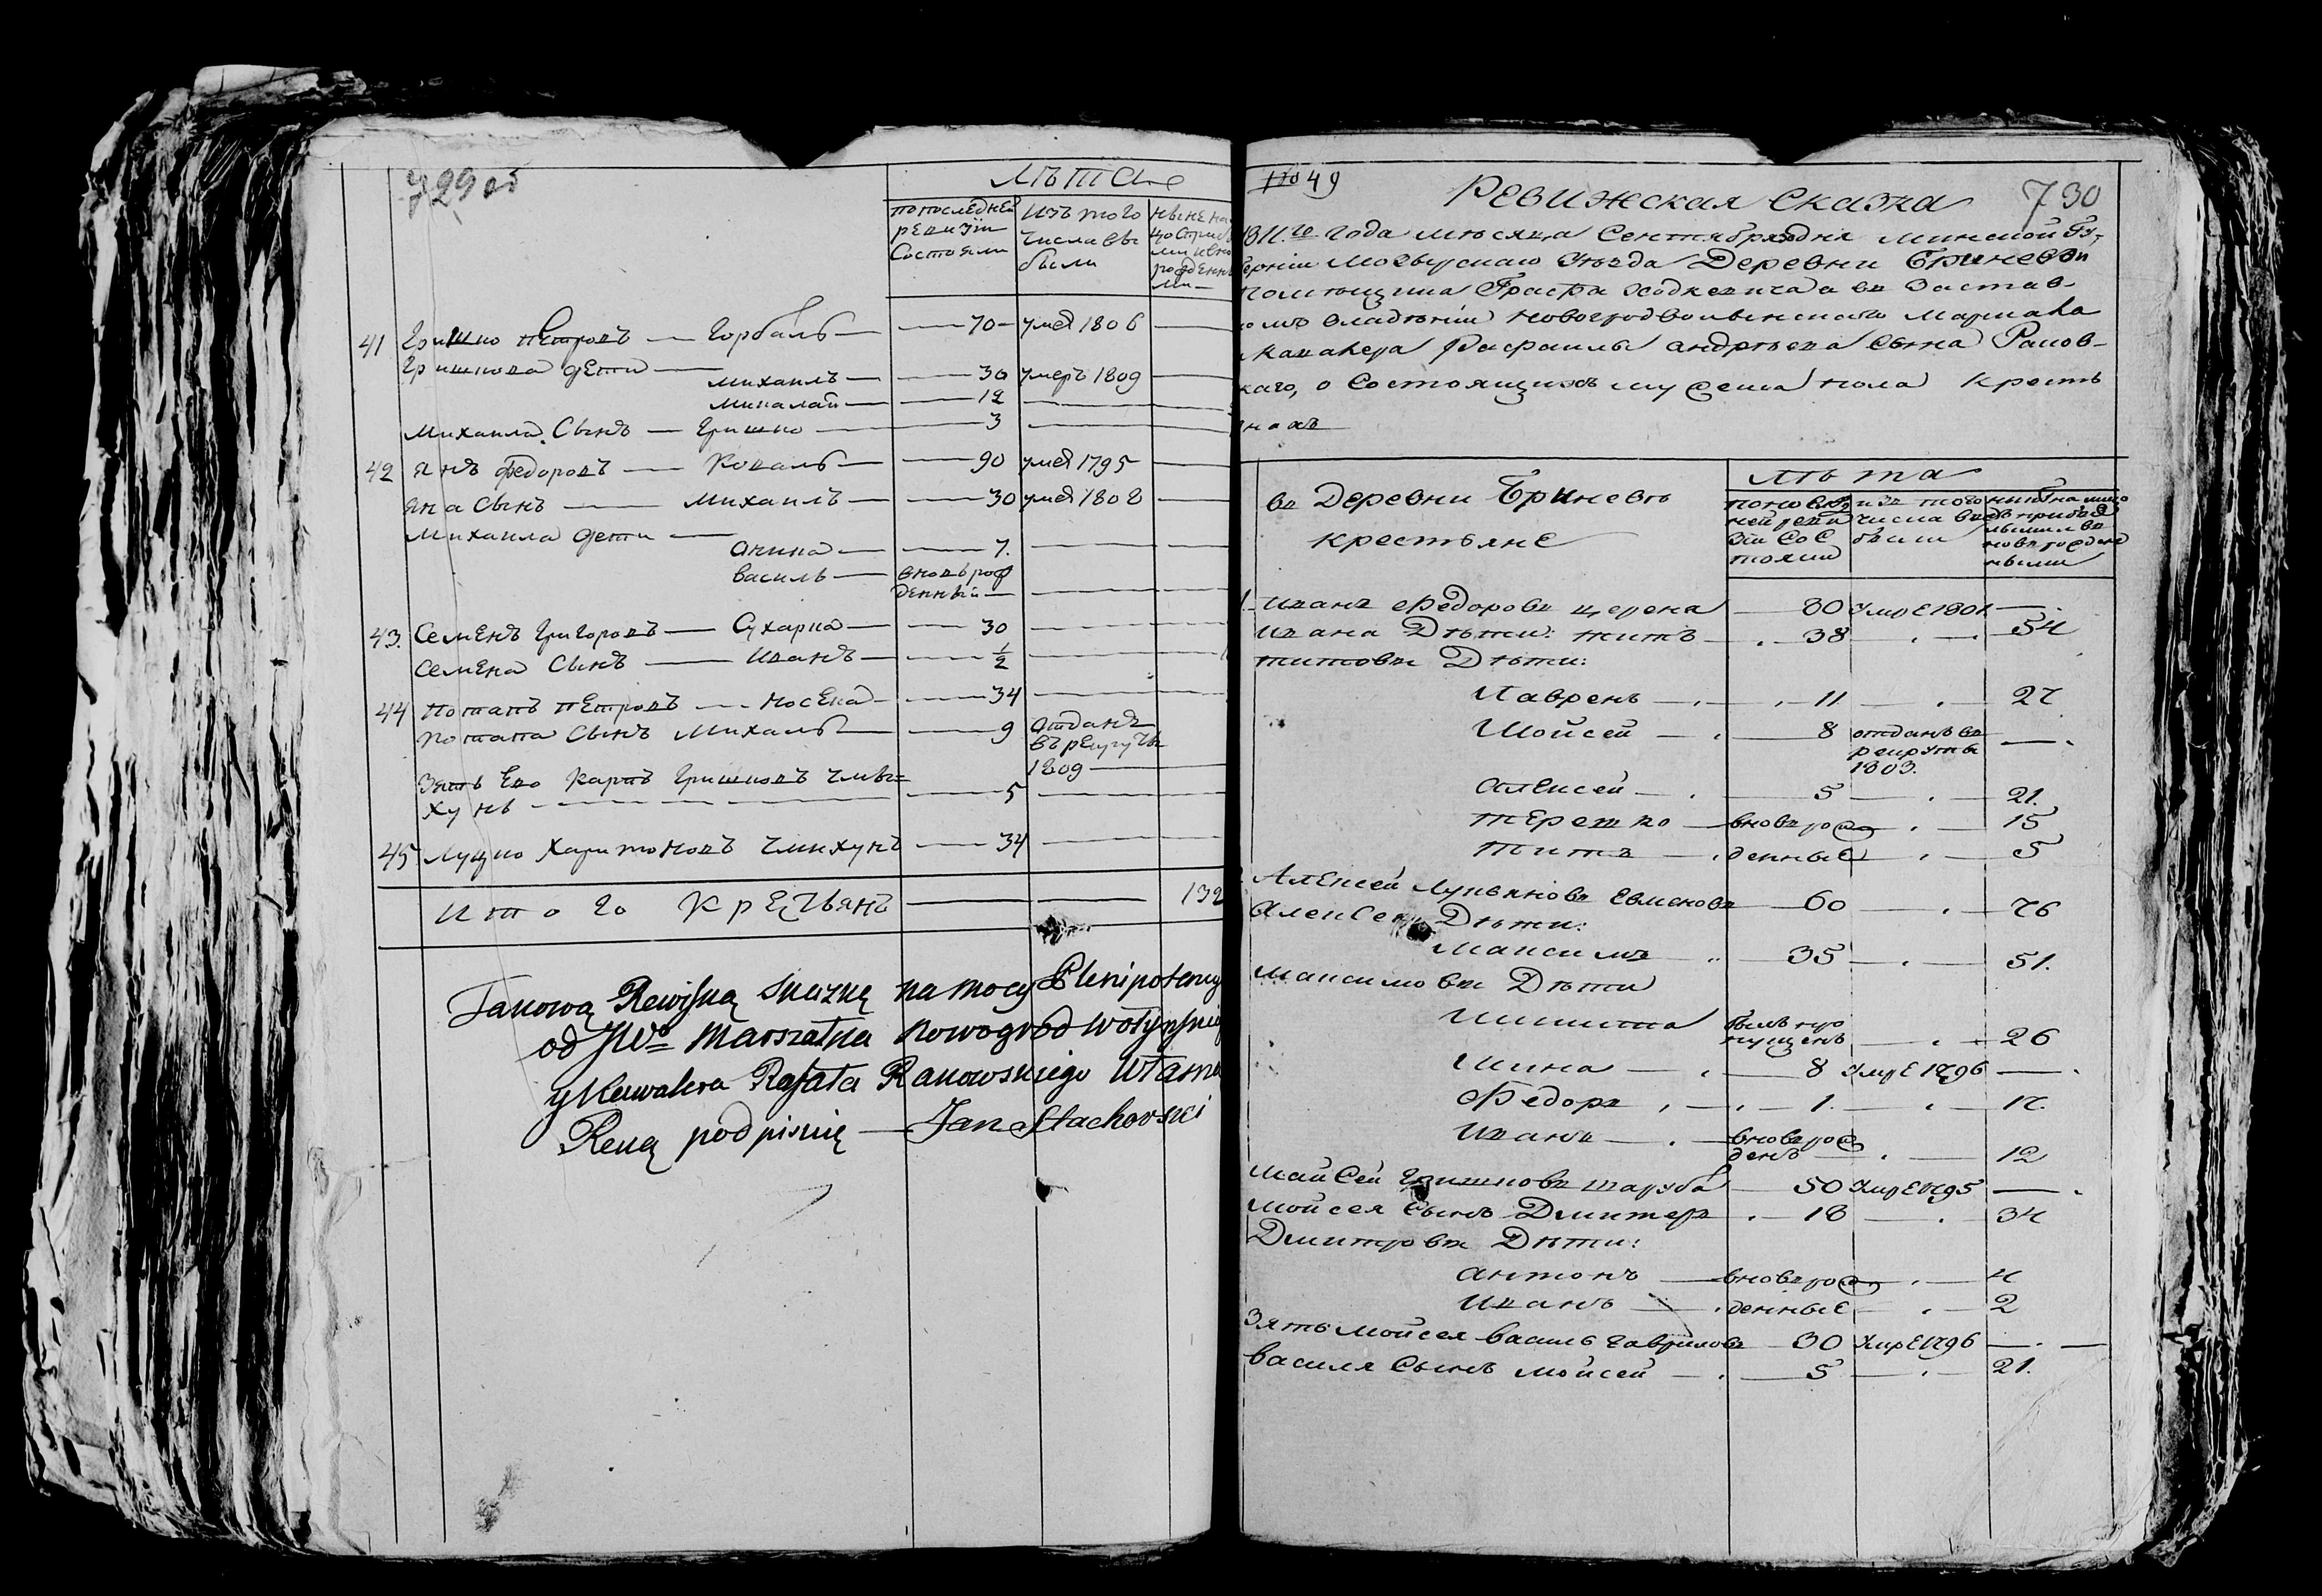 729 об
Лѣта
по последней
ревизіи
состояли
изъ того
числа вы
были
нынѣ на
41 Гришко Петровъ — Горбаль — 70 — умер 1806
Гришкова дети —
Михаилъ — 30 умеръ 1809
Миколай — 12
Михаила Сынъ — Гришко — 3
42 Янъ Федоровъ — Коваль — 90 умер 1795
Яна Сынъ — Михаилъ — 30 умер 1808
Михаила дети —
Аника — 7.
Василь — вновь рож
денный —
43. Семенъ Григоровъ — Сухарка — 30
Семена Сынъ — Иванъ — 1/2
44 Потапъ Петровъ — Носека — 34
Потапа Сынъ Михаль — 9 отданъ
въ рекруты
1809
Зять Его Карпъ Гришковъ Чмы=
хунь — 5
45 Луцко Харитоновъ Чмихунъ — 34
Итого Крестьянъ — 132
Takową Rewiską skazkę na mocy Plenipotency
od JWo Marszałka Nowogrod Wołynskie
y Kawalera Rafała Rakowskiego Własną
Ręką podpisuię — Jan Stachowski
49
Ревижская Сказка 730
1811.го Года месяца Сентября дня Минской Гу-
берніи Мозырскаго Уѣзда Деревни Бриневои
Помѣщика Графа Ходкевича а въ Застав-
номъ владѣніи Новогродволынского Маршала
Кавалера Рафаила Андрѣева Сына Раков-
каго, о Состоящихъ мужеска пола Крестъ
янахъ
въ Деревни Бриневѣ
крестьянѣ
Лѣта
по новей
ней реви
зіи сос
тояли
из того
числа въ
были
Иванъ Федоровъ Церена — 80 Умре 1801. —
Ивана Дѣти: Титъ — 38 — 54
Титовы Дѣти:
Лаврень — 11 — 27
Мойсей — 8 отданъ въ
рекруты
1803.
Алексей — 5 — 21.
Терешко — вновь рож — 15
Титъ — денные — 5
Алексей Лукьяновъ Евменовъ — 60 — 76
Алексея Дѣти:
Максимъ — 35 — 51.
Максимовы Дѣти
Микита быль про
пущенъ — 26
Мина — 8 Умре 1796 —
Федоръ — 1. — 17.
Иванъ — вновь рож
денъ — 12
Майсей Гришковъ Шаруба — 50 Умре 1795 —
Мойсея Сынъ Дмитеръ — 18 — 34
Дмитровы Дѣти:
Антонъ — вновь рож — 4
Иванъ — денные — 2
Зять Мойсея Василь Гавриловъ — 30 Умре 1796 —
Василя Сынъ Мойсей — 5 — 21.